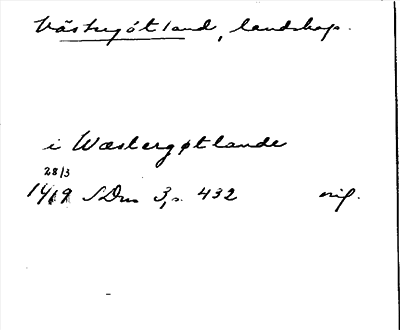 Västergötland, landskap.
i Wæstergøtlande
28/3
1419 SDns 3, s. 432 orig.